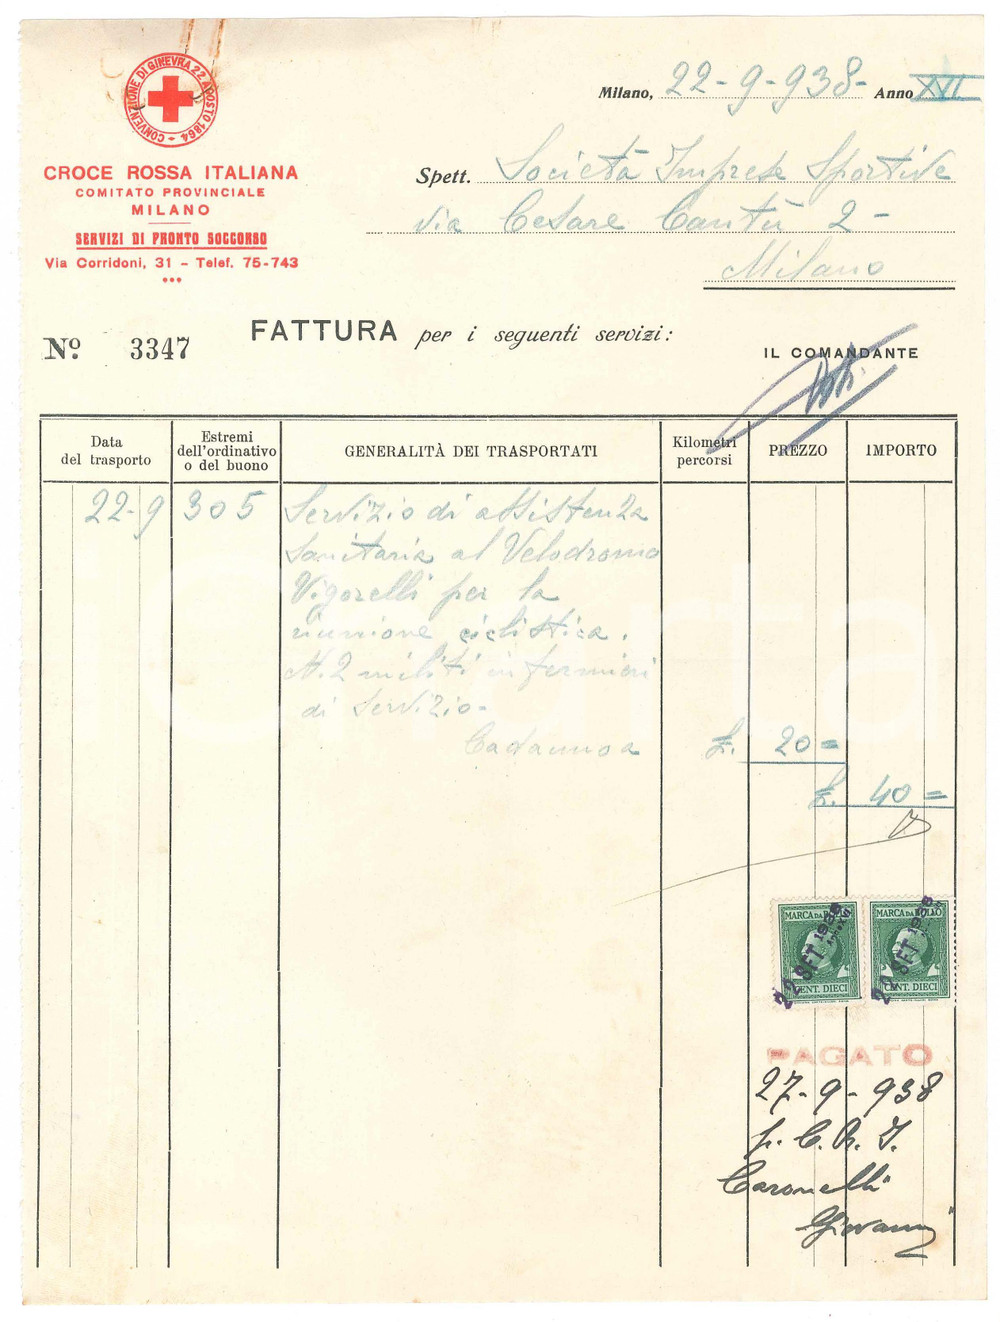 CONVENZIONE DI GINEVRA 22 AGOSTO 1864
CROCE ROSSA ITALIANA
COMITATO PROVINCIALE
MILANO
SERVIZI DI PRONTO SOCCORSO
Via Corridoni, 31 - Telef. 75-743
Milano, 22-9-938- Anno XVI
Spett. Società Imprese Sportive
via Cesare Cantù 2-
Milano
Nº 3347
FATTURA per i seguenti servizi:
IL COMANDANTE
Data del trasporto
Estremi dell'ordinativo o del buono
GENERALITÀ DEI TRASPORTATI
Kilometri percorsi
PREZZO
IMPORTO
22-9 305 Servizio di assistenza
sanitaria al Velodromo
Vigorelli per la
riunione ciclistica.
N. 2 militi infermieri
di servizio-
Cadauno a £. 20=
£. 40=
MARCA DA BOLLO
CENT. DIECI
22 SET 1938
MARCA DA BOLLO
CENT. DIECI
22 SET 1938
PAGATO
27-9-938
p. C. R. I.
Caronelli
Giovanni